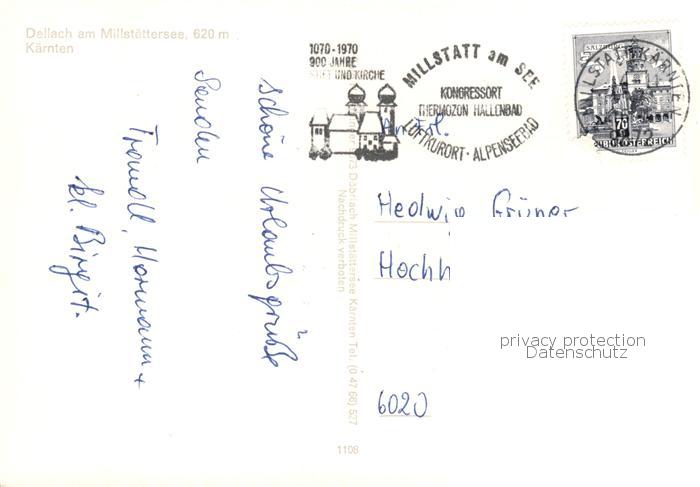 Dellach am Millstättersee, 620 m
Kärnten
1070-1970
900 JAHRE
STIFT UND KIRCHE
MILLSTATT am SEE
KONGRESSORT
THERMOZON HALLENBAD
LUFTKURORT · ALPENSEEBAD
SALZBURG
MILLSTATT, KÄRNTEN
70
REPUBLIK ÖSTERREICH
An Frl.
Hedwig
Hochh
6020
schöne Urlaubsgrüße
Senden
Traudl, Hermann +
kl. Birgit.
Döbriach Millstättersee Kärnten Tel. (0 47 66) 527
Nachdruck verboten
1108
privacy protection
Datenschutz